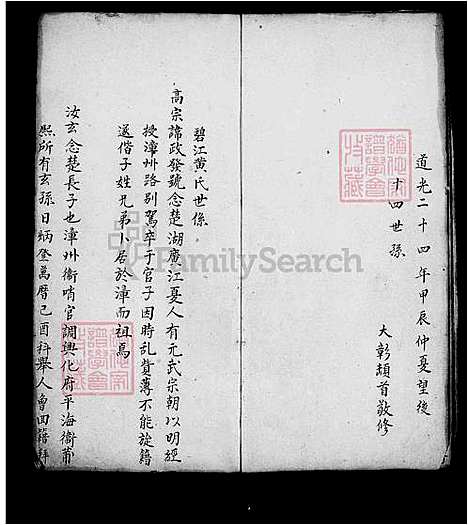 道光二十四年甲辰仲夏望後
十四世孫
大彰頡首敬修
碧江黄氏世係
高宗諱政發號念楚湖廣江夏人有元武宗朝以明經
授漳州路別駕卒于官子因時乱貲薄不能旋籍
遂偕子姓兄弟卜居於漳而祖焉
汝玄念楚長子也漳州衛哨官調興化府平海衛莆
熙所有玄孫日炳登萬曆己酉科舉人會回籍
FamilySearch